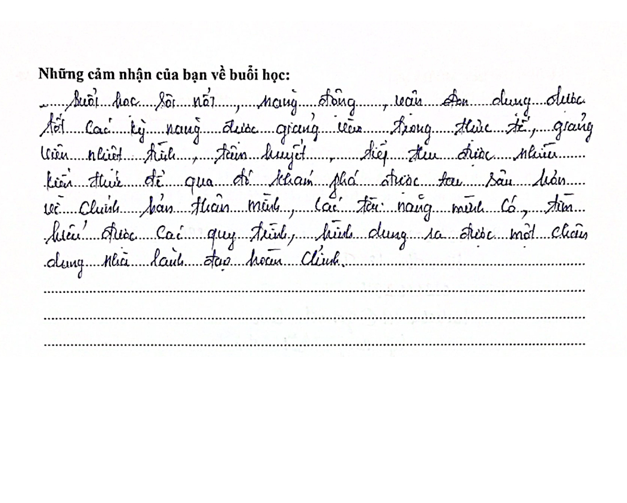 Những cảm nhận của bạn về buổi học:
Buổi học sôi nổi, năng động, vận dụng được
tốt các kỹ năng được giảng vào trong thực tế, giảng
viên nhiệt tình, tâm huyết, tiếp thu được nhiều
kiến thức để qua đó khám phá được sâu hơn
về chính bản thân mình, các tài năng mình có, tìm
hiểu được các quy trình, hình dung ra được một chân
dung nhà lãnh đạo hoàn chỉnh.